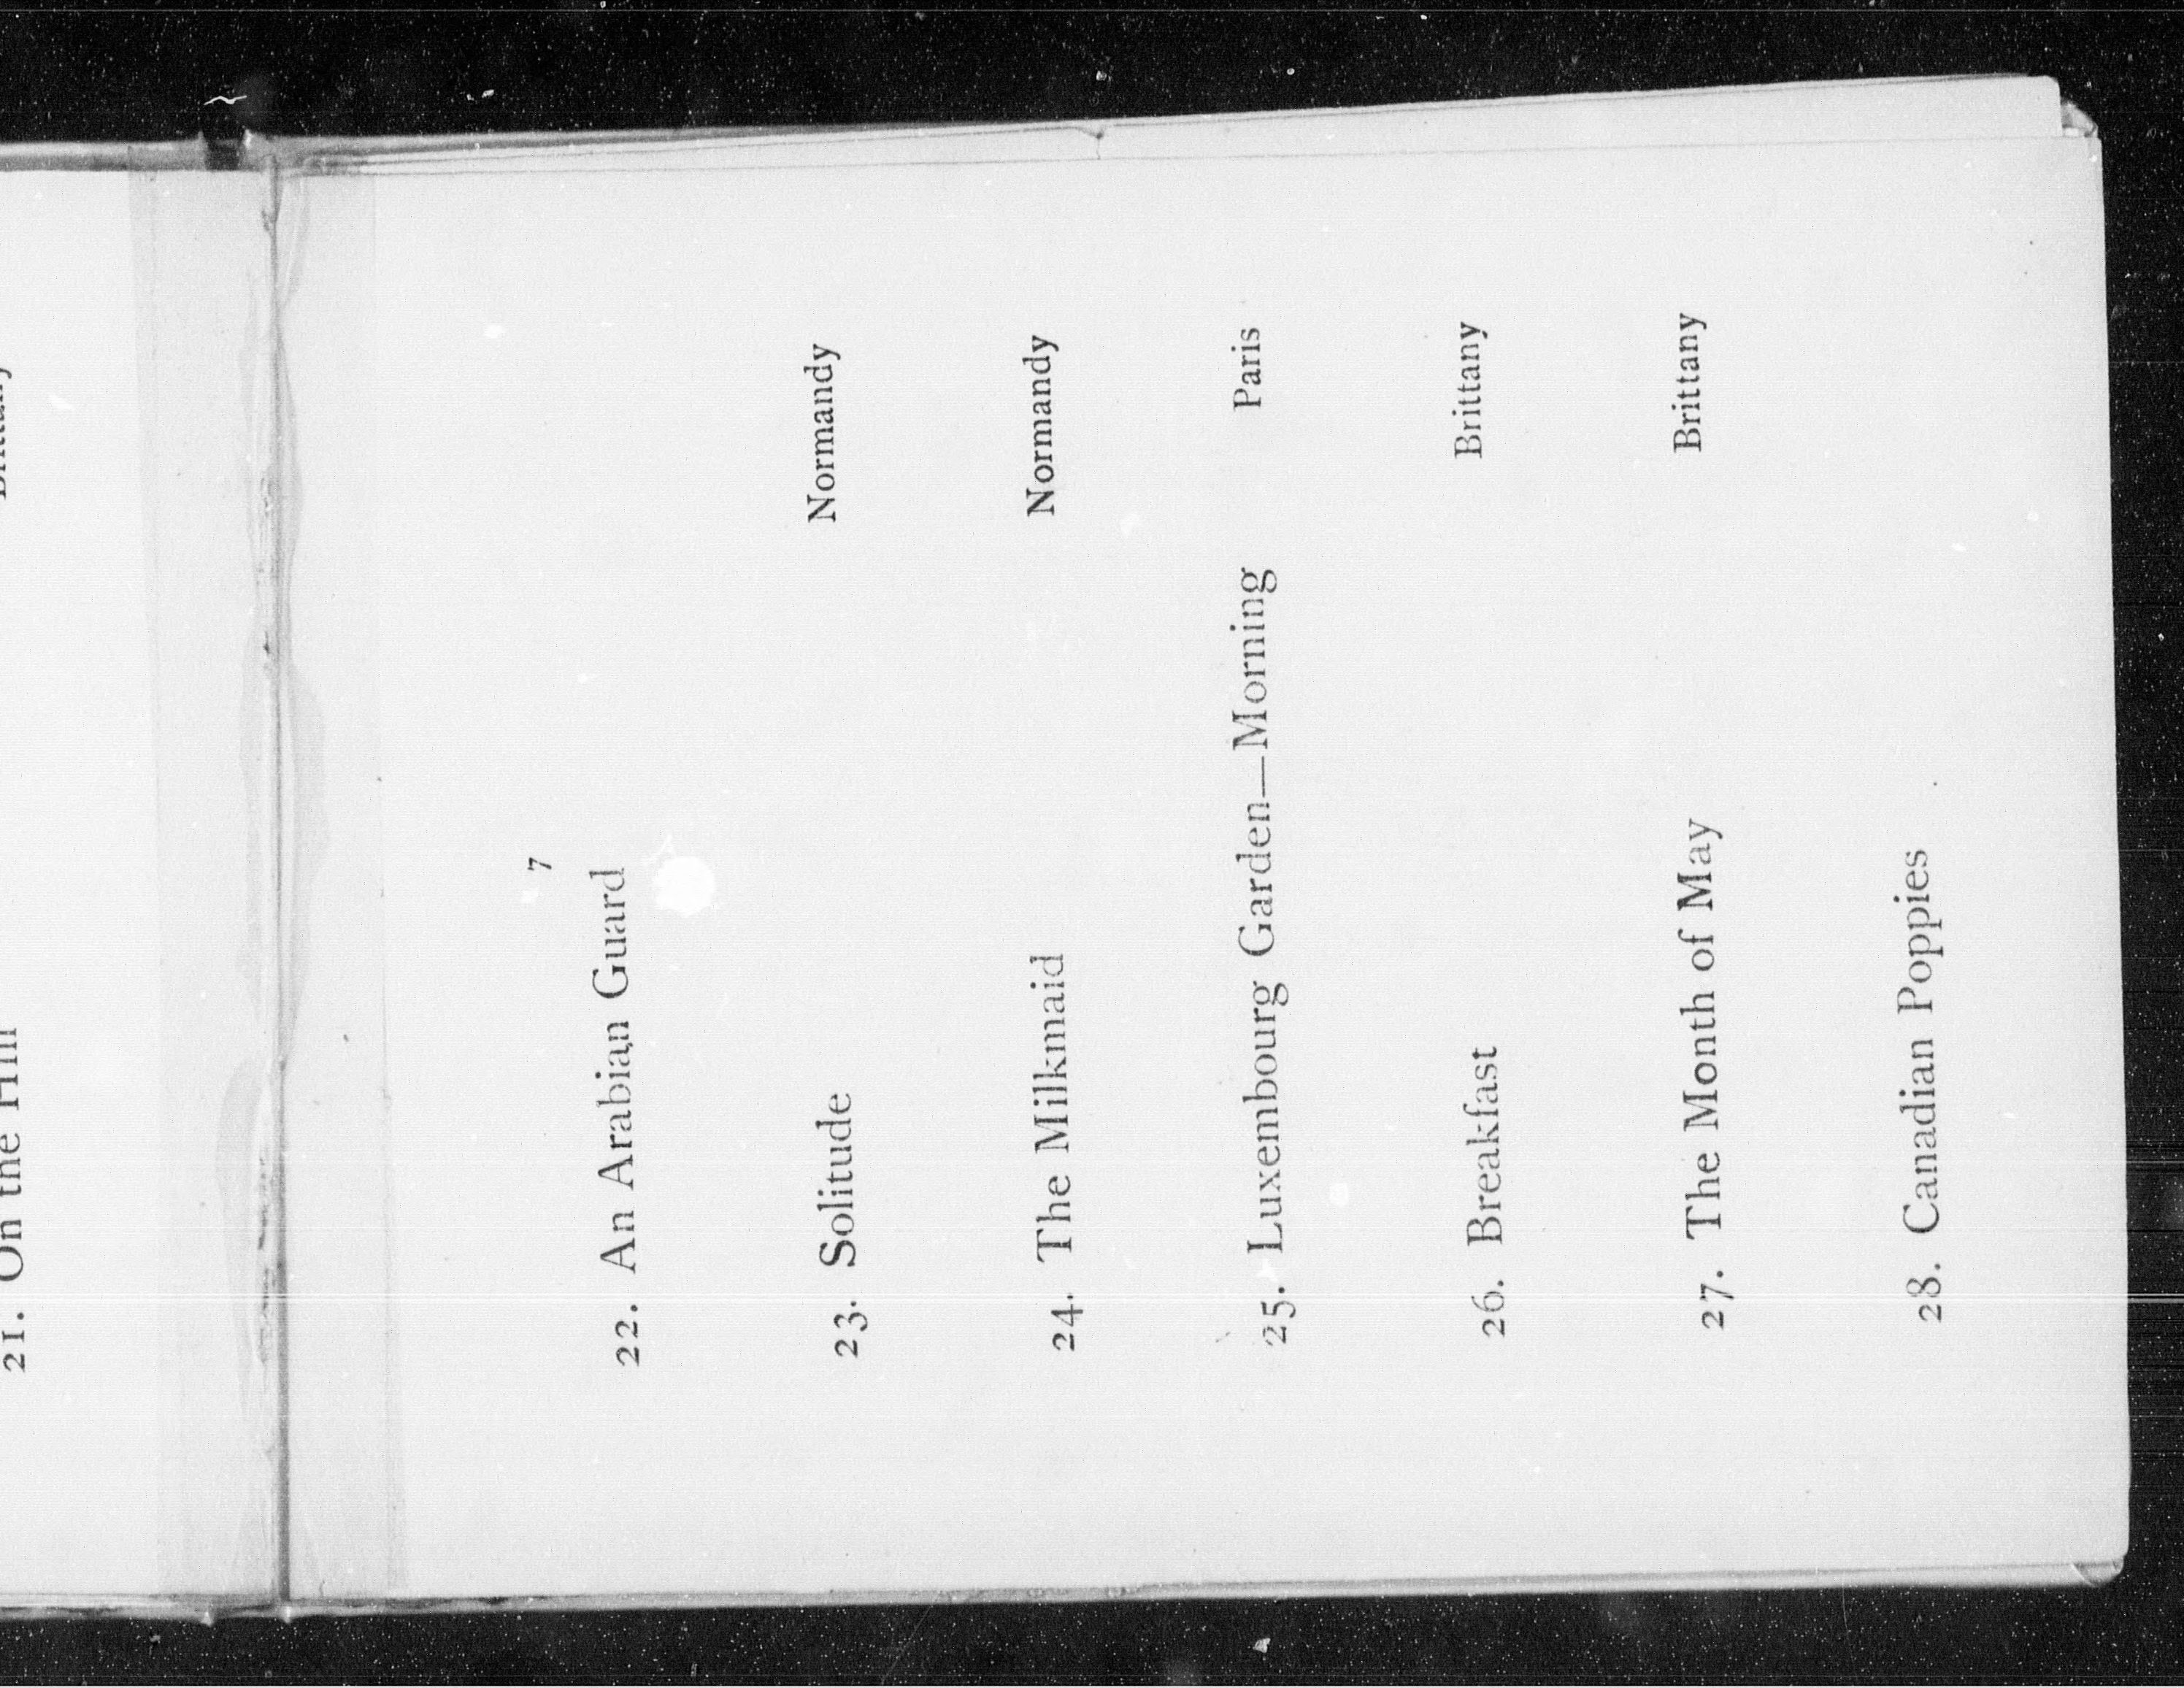 21. On the Hill
7
22. An Arabian Guard
23. Solitude Normandy
24. The Milkmaid Normandy
25. Luxembourg Garden—Morning Paris
26. Breakfast Brittany
27. The Month of May Brittany
28. Canadian Poppies